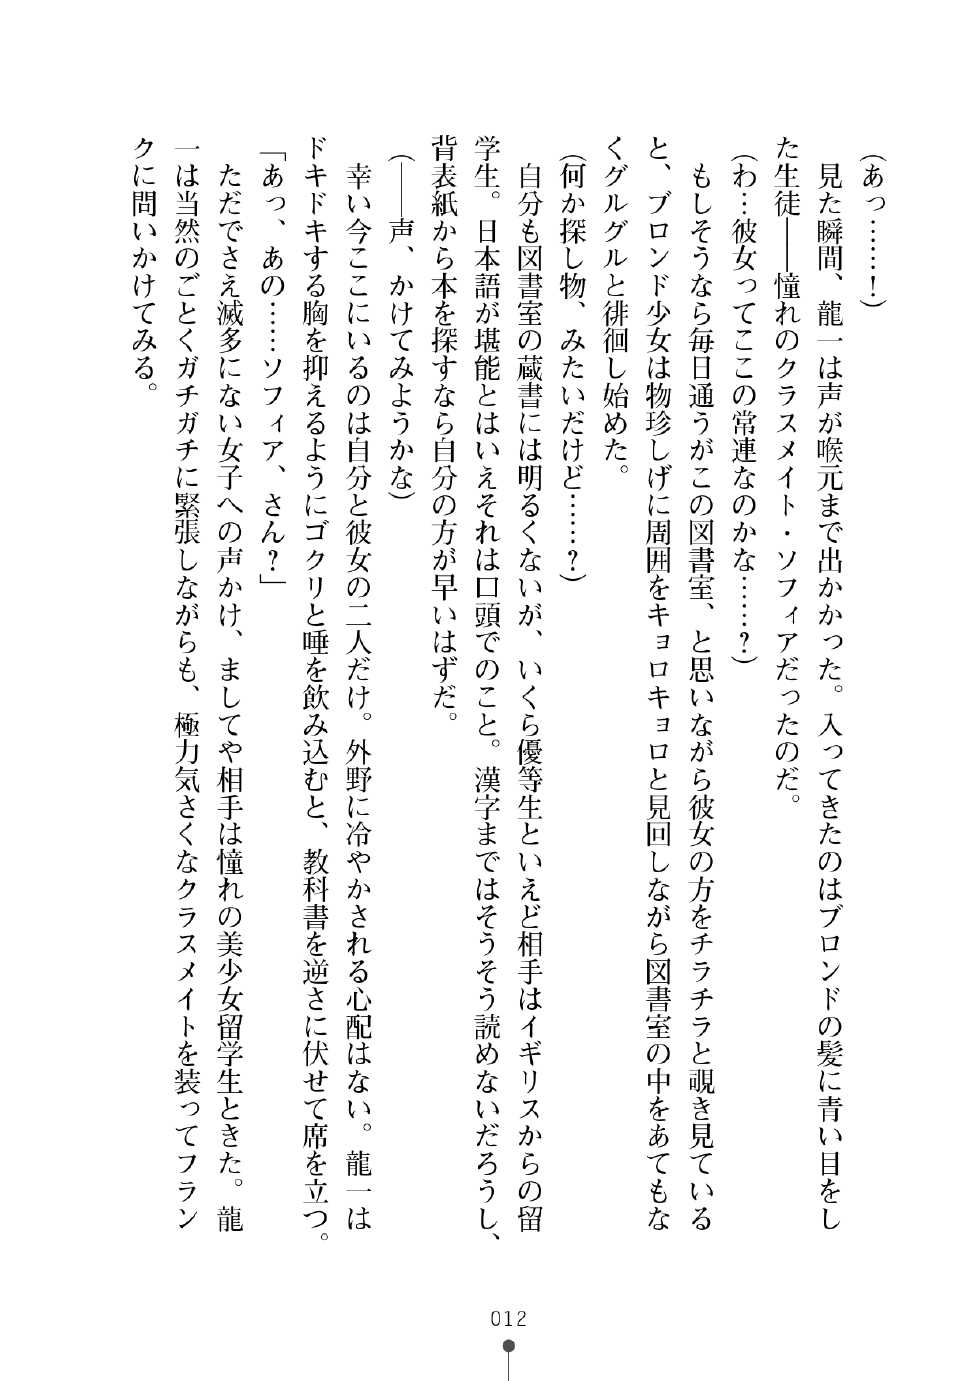 （あっ……！）
　見た瞬間、龍一は声が喉元まで出かかった。入ってきたのはブロンドの髪に青い目をし
た生徒――憧れのクラスメイト・ソフィアだったのだ。
（わ…彼女ってここの常連なのかな……？）
　もしそうなら毎日通うがこの図書室、と思いながら彼女の方をチラチラと覗き見ている
と、ブロンド少女は物珍しげに周囲をキョロキョロと見回しながら図書室の中をあてもな
くグルグルと徘徊し始めた。
（何か探し物、みたいだけど……？）
　自分も図書室の蔵書には明るくないが、いくら優等生といえど相手はイギリスからの留
学生。日本語が堪能とはいえそれは口頭でのこと。漢字まではそうそう読めないだろうし、
背表紙から本を探すなら自分の方が早いはずだ。
（――声、かけてみようかな）
　幸い今ここにいるのは自分と彼女の二人だけ。外野に冷やかされる心配はない。龍一は
ドキドキする胸を抑えるようにゴクリと唾を飲み込むと、教科書を逆さに伏せて席を立つ。
「あっ、あの……ソフィア、さん？」
　ただでさえ滅多にない女子への声かけ、ましてや相手は憧れの美少女留学生ときた。龍
一は当然のごとくガチガチに緊張しながらも、極力気さくなクラスメイトを装ってフラン
クに問いかけてみる。
012